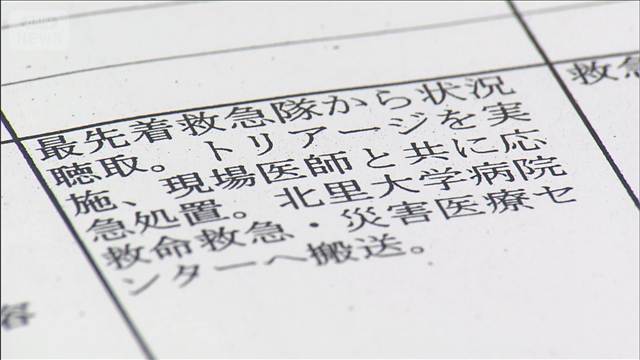 最先着救急隊から状況
聴取。トリアージを実
施、現場医師と共に応
急処置。北里大学病院
救命救急・災害医療セ
ンターへ搬送。
救急
容